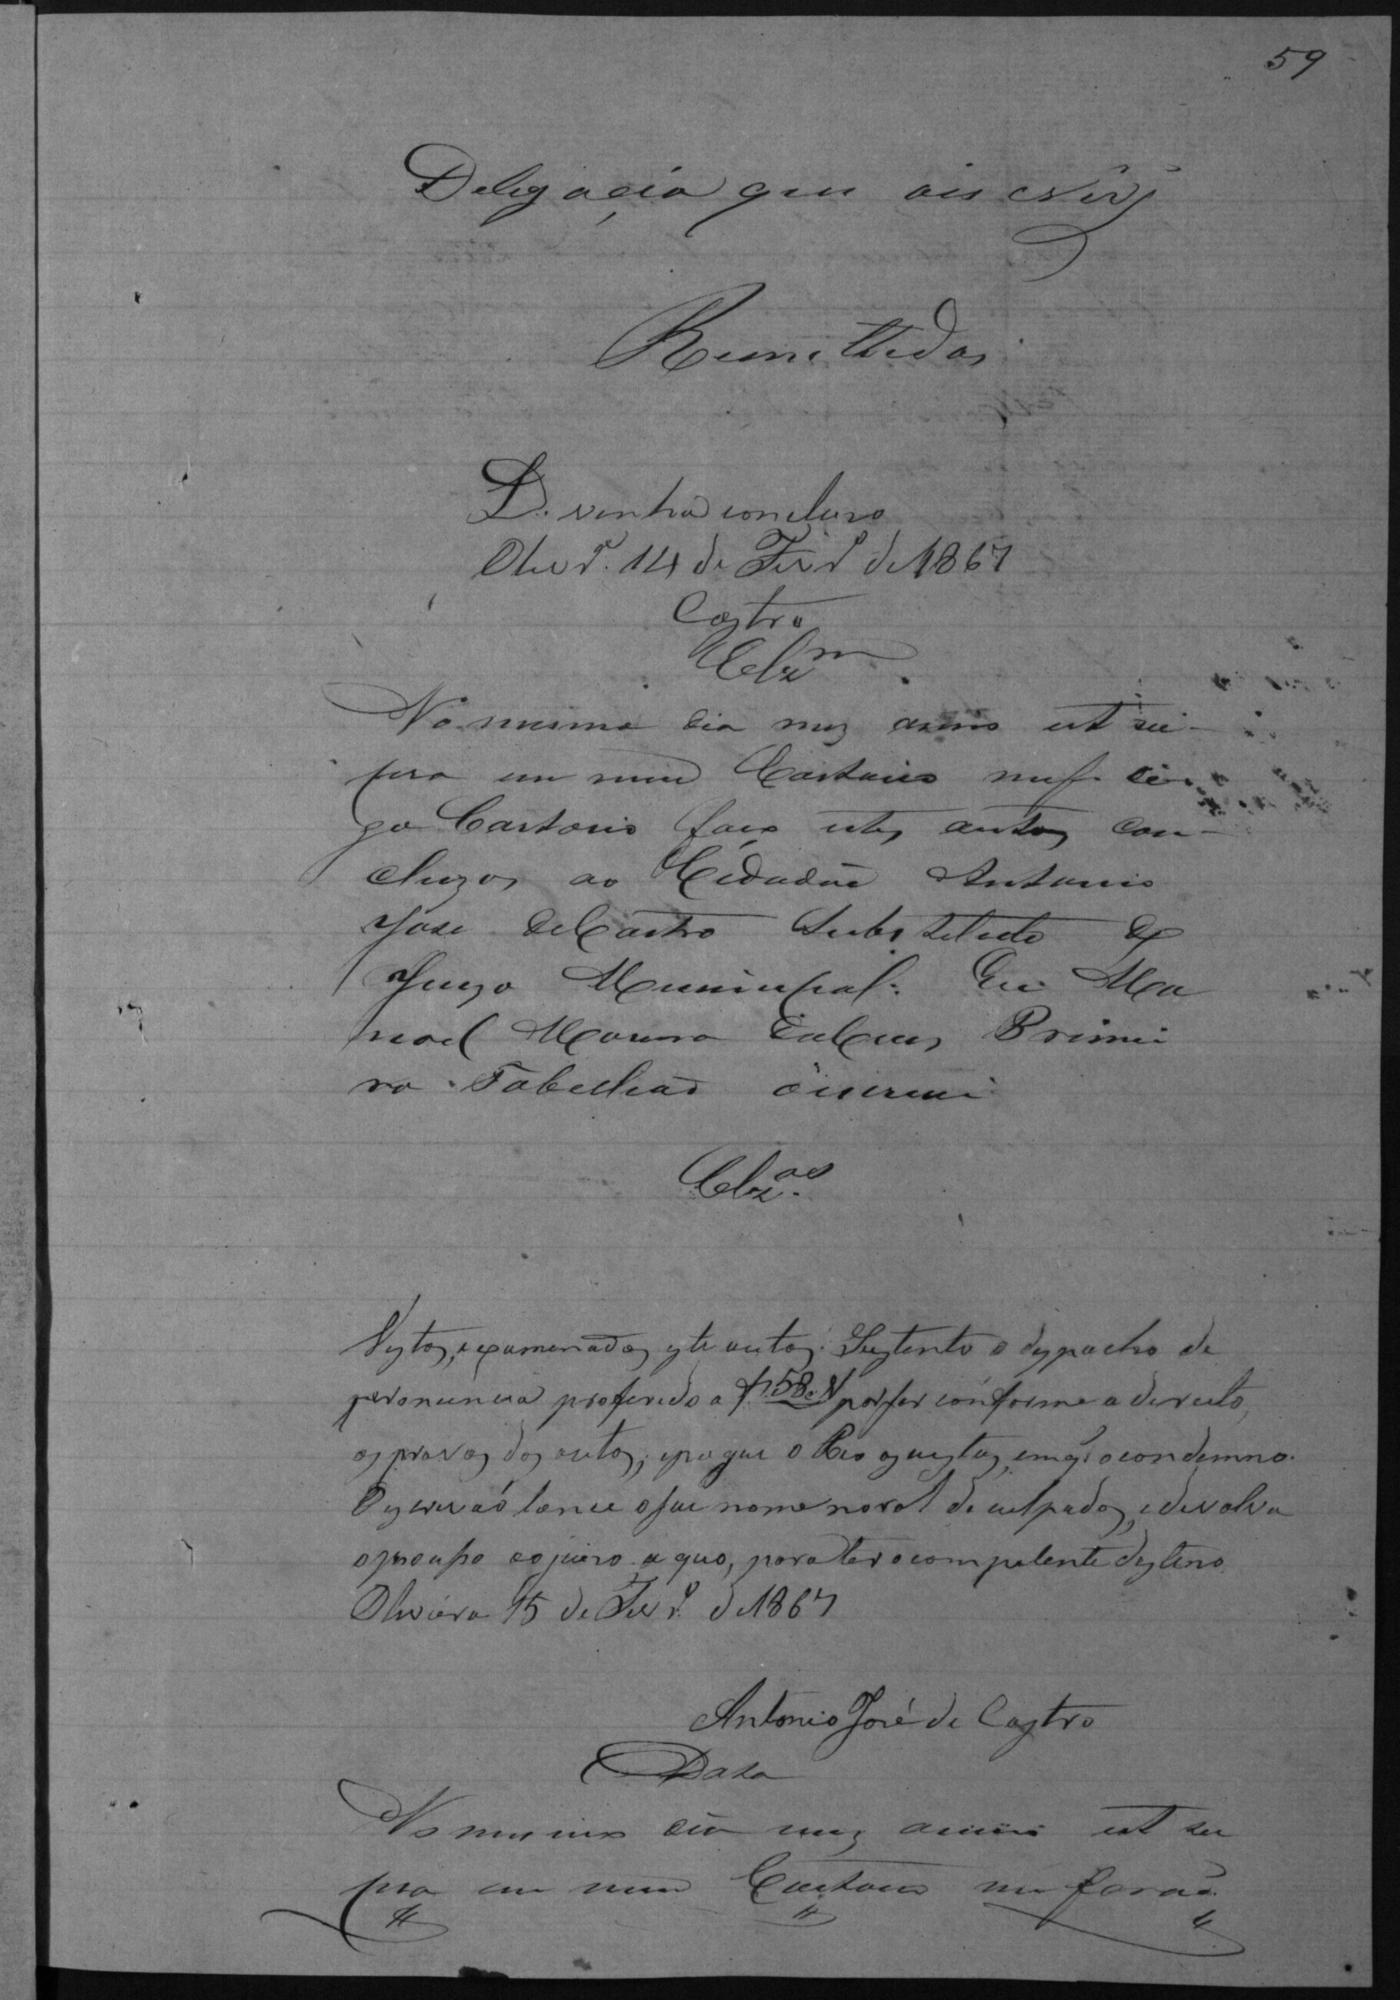 59
Delegacia que o escrevy
Remettidos
D. venha concluso
Olivr.ª 14 de Fevr.º de 1867
Castro
Clz.m
No mesmo dia mez anno ut su-
pra em meu Cartorio
go Cartorio faço estes autos con-
cluzos ao Cidadão Antonio
Jose de Castro Substituto do
Juizo Municipal. Eu Ma
noel Primei
ro Tabellião o escrevi
Clz.os
Vystos, e examenados este autos. Systento o dyspacho de
pronuncia proferido a f 58 V por ser conforme a direito,
as provas dos autos; e pague o Reo as custas, em q' o condemno.
O escrivaõ lance o seu nome no rol de culpados, e devolva
o processo ao juizo a quo, para ter o competente dystino.
Oliveira 15 de Fevr.º de 1867
Antonio José de Castro
Data
No mesmo dia mez anno ut su
pra em meu Cartorio me foraõ